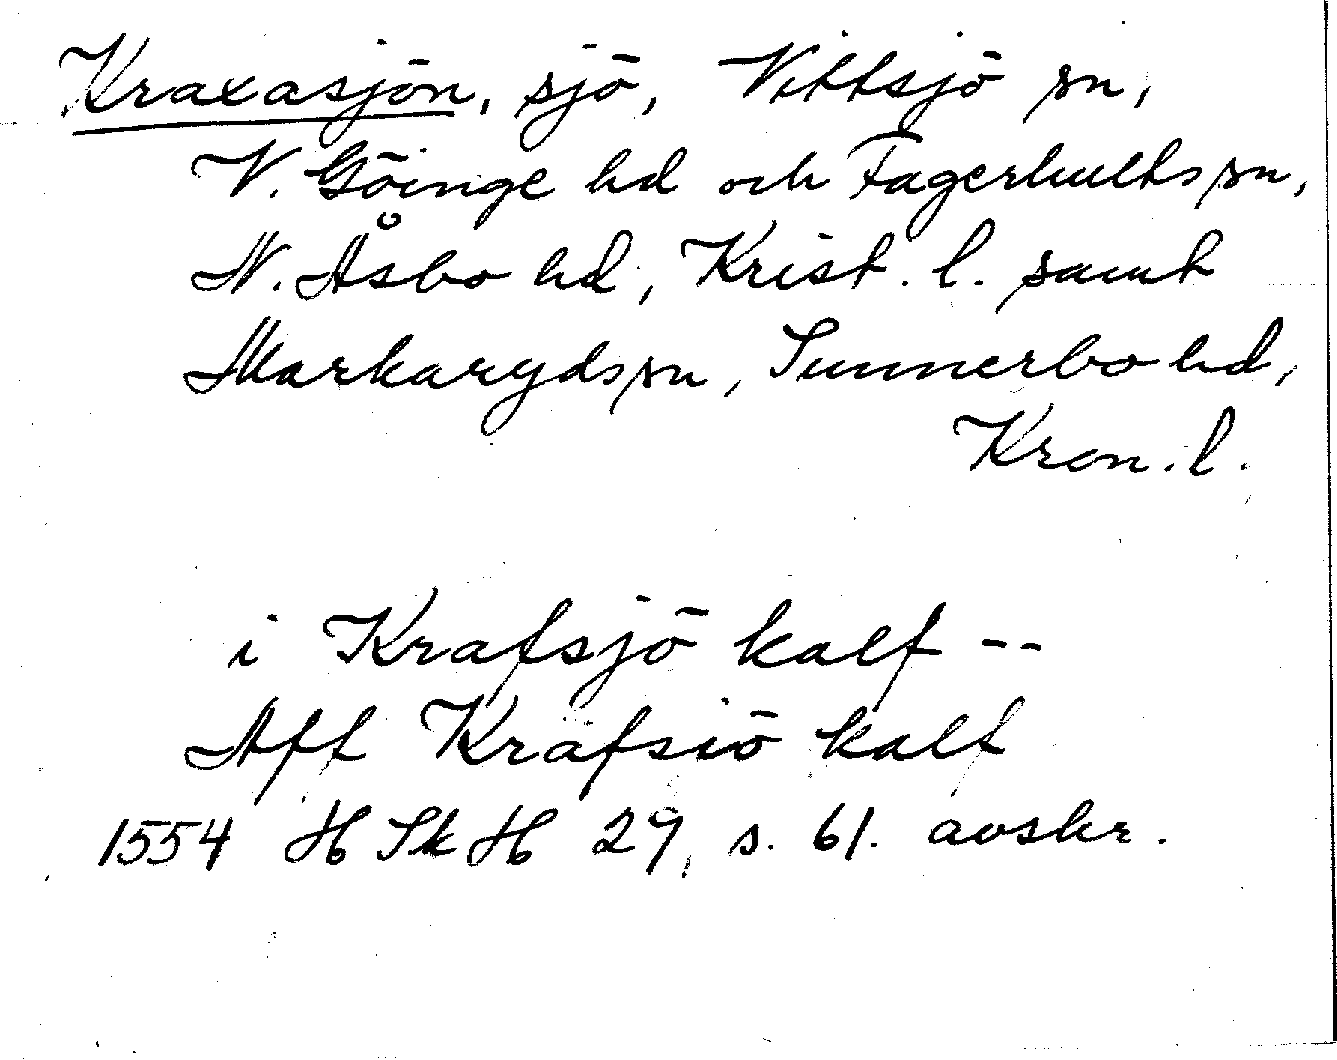 Kraxasjön, sjö, Vittsjö sn,
V. Göinge hd och Fagerhults sn,
N. Åsbo hd, Krist. l. samt
Markaryds sn, Sunnerbo hd,
Kron. l.
i Krafsjö kalf --
Aff Krafsiö kalf
1554 H Sk H 29, s. 61. avskr.